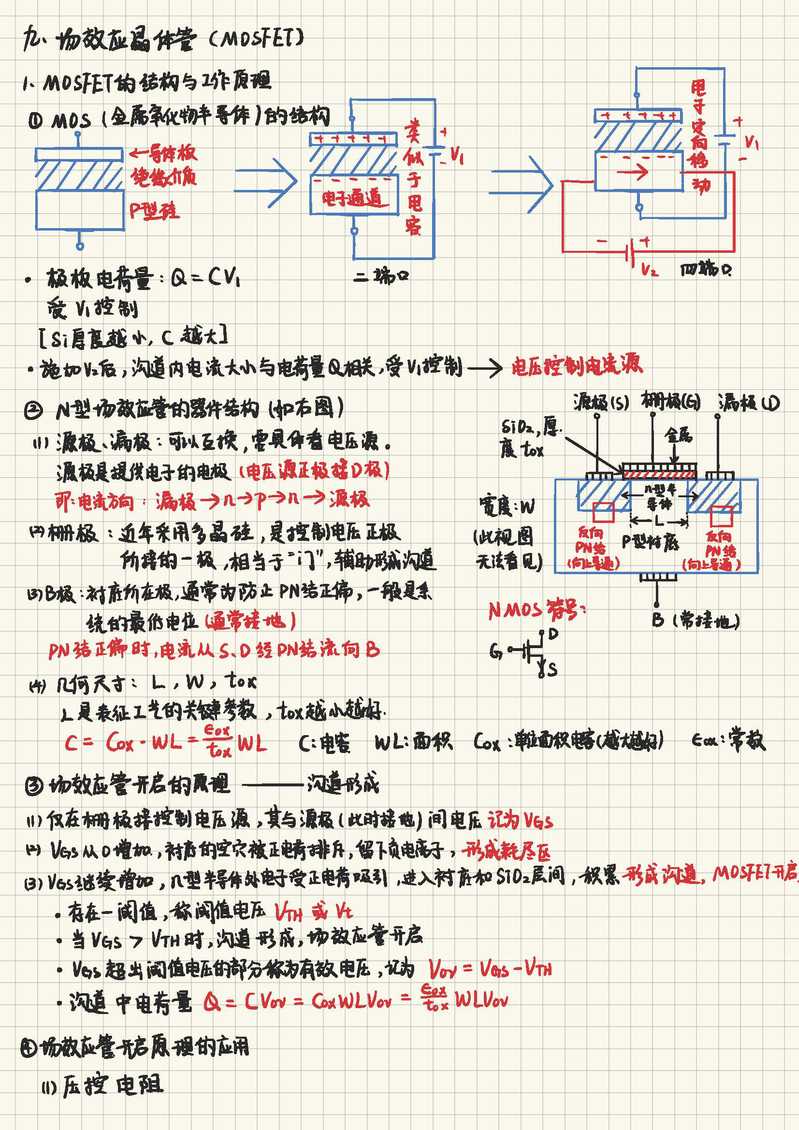 九、场效应晶体管（MOSFET）
1、MOSFET的结构与工作原理
① MOS（金属氧化物半导体）的结构
←导体板
绝缘介质
P型硅
+ + + + +
- - - - -
电子通道
类似于电容
+
V1
-
二端口
+ + + + +
- - - -
→
电子定向移动
+
V1
-
- +
V2
四端口
· 极板电荷量：Q = CV1
受 V1 控制
[Si厚度越小，C 越大]
· 施加V2后，沟道内电流大小与电荷量Q相关，受V1控制 → 电压控制电流源
② N型场效应管的器件结构（如右图）
(1) 源极、漏极：可以互换，需具体看电压源。
源极是提供电子的电极（电压源正极接D极）
即：电流方向：漏极→n→p→n→源极
(2) 栅极：近年采用多晶硅，是控制电压正极
所接的一极，相当于“门”，辅助形成沟道
(3) B极：衬底所在极，通常为防止PN结正偏，一般是系
统的最低电位（通常接地）
PN结正偏时，电流从S、D经PN结流向B
源极(S) 栅极(G) 漏极(D)
SiO2，厚度tox
金属
n型半导体
L
P型衬底
宽度：W
(此视图无法看见)
反向PN结(向上导通)
反向PN结(向上导通)
B（常接地）
NMOS 符号：
D
G
S
(4) 几何尺寸：L，W，tox
L是表征工艺的关键参数，tox越小越好.
C = Cox · WL = εox/tox WL C:电容 WL:面积 Cox:单位面积电容(越大越好) εox:常数
③ 场效应管开启的原理 —— 沟道形成
(1) 仅在栅极接控制电压源，其与源极（此时接地）间电压记为VGS
(2) VGS从0增加，衬底的空穴被正电荷排斥，留下负电离子，形成耗尽区
(3) VGS继续增加，n型半导体处电子受正电荷吸引，进入衬底和SiO2层间，积累形成沟道，MOSFET开启
· 存在一阈值，称阈值电压 VTH 或 Vt
· 当 VGS > VTH 时，沟道形成，场效应管开启
· VGS 超出阈值电压的部分称为有效电压，记为 Vov = VGS - VTH
· 沟道中电荷量 Q = CVov = CoxWLVov = εox/tox WLVov
④ 场效应管开启原理的应用
(1) 压控电阻